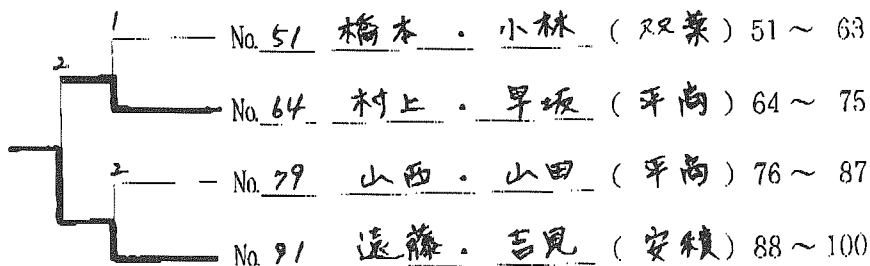 1
No. 51 橋本 ・ 小林 ( 双葉 ) 51 ~ 63
2
No. 64 村上 ・ 早坂 ( 平商 ) 64 ~ 75
2
No. 79 山西 ・ 山田 ( 平商 ) 76 ~ 87
No. 91 遠藤 ・ 吉見 ( 安積 ) 88 ~ 100